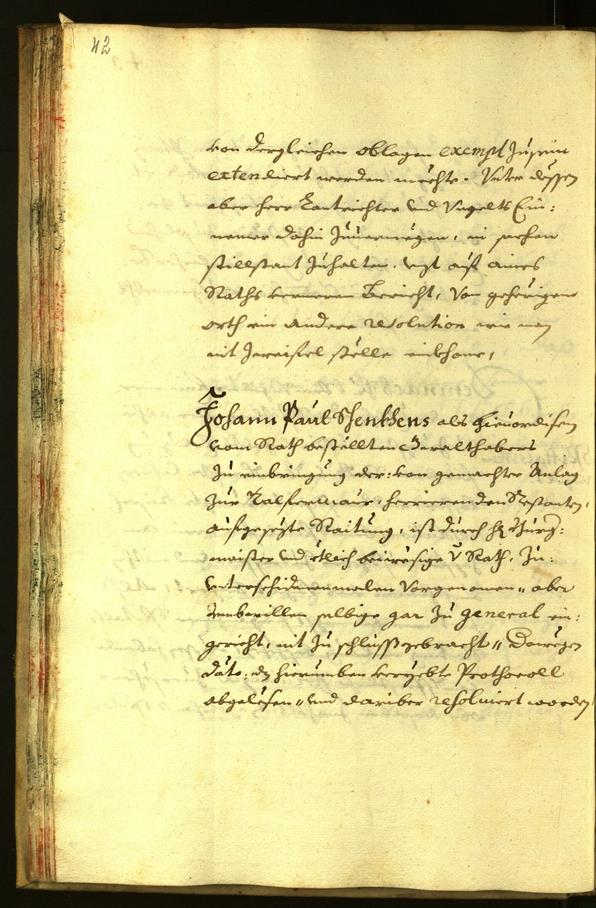 42
von dergleichen oblagen exempt zusein
extendiert werden möchte. Unter dessen
aber herr Landrichter und Umgelts Ein:
nemer dahin zuvermögen, in sachen
stillstant zuhalten, biß auf aines
Raths verneren Bericht, von gehörigen
orth ein andere resolution wie man
nit zweifel stelle einkhome,
Johann Paul Schenkhens als hievordisen
vom Rath bestelten Gwalthabers
zu einbringung der von gemachter Anlag
zur Talfermaur, herrierenden Restanten,
aufgesezte Raitung, ist durch hr Burg:
maister und etlich beiwesige Rath, zu
unterschidenenmalen vorgenomen, aber
umbwillen selbige gar zu general ein:
gericht, nit zu schluss gebracht, Derwegen
dato, dz hierumben Prothocoll
abgelesen, und dariber resolviert worden